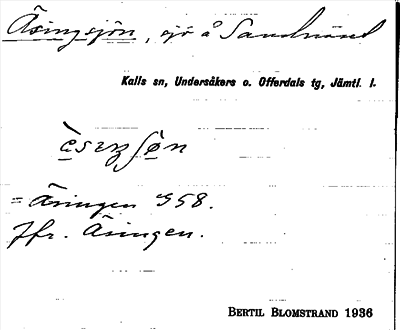 Äsingsjön, sjö å Sandnäset
Kalls sn, Undersåkers o. Offerdals tg, Jämtl. l.
= Äsingen G58.
Jfr. Äsingen.
BERTIL BLOMSTRAND 1936